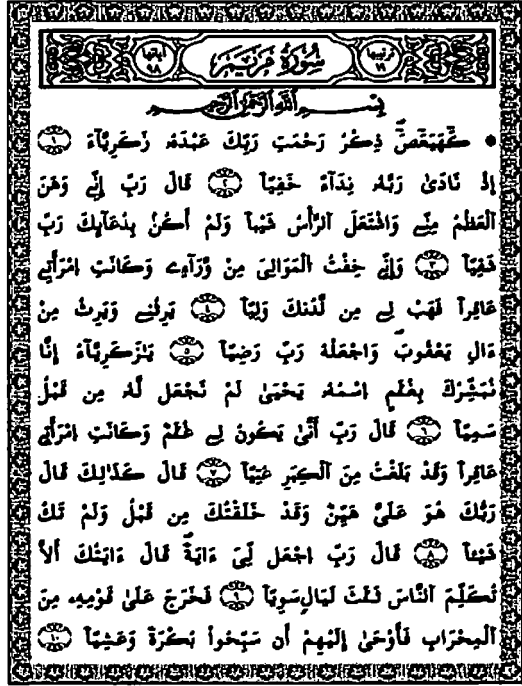 ترتيبها ١٩ سُورَةُ مَرْيَمَ آياتها ٩٨
بِسْمِ اللَّهِ الرَّحْمَٰنِ الرَّحِيمِ
كَٓهَيَعَٓصَٓ ذِكْرُ رَحْمَتِ رَبِّكَ عَبْدَهُۥ زَكَرِيَّآءَ ١
إِذْ نَادَىٰ رَبَّهُۥ نِدَآءً خَفِيّاٗ ٢ قَالَ رَبِّ إِنِّے وَهَنَ
اَ۬لْعَظْمُ مِنِّے وَاشْتَعَلَ اَ۬لرَّأْسُ شَيْباٗ وَلَمْ أَكُنۢ بِدُعَآئِكَ رَبِّ
شَقِيّاٗ ٣ وَإِنِّے خِفْتُ اُ۬لْمَوَٰلِيَ مِنْ وَّرَآءِے وَكَانَتِ اِ۪مْرَأَتِے
عَاقِراٗ فَهَبْ لِے مِن لَّدُنكَ وَلِيّاٗ ٤ يَرِثُنِے وَيَرِثُ مِنْ
ءَالِ يَعْقُوبَ وَاجْعَلْهُ رَبِّ رَضِيّاٗ ٥ يَٰزَكَرِيَّآءُ إِنَّا
نُبَشِّرُكَ بِغُلَٰمٍ اِ۪سْمُهُۥ يَحْيَىٰ لَمْ نَجْعَل لَّهُۥ مِن قَبْلُ
سَمِيّاٗ ٦ قَالَ رَبِّ أَنَّىٰ يَكُونُ لِے غُلَٰمٌ وَكَانَتِ اِ۪مْرَأَتِے
عَاقِراٗ وَقَدْ بَلَغْتُ مِنَ اَ۬لْكِبَرِ عُتِيّاٗ ٧ قَالَ كَذَٰلِكَ قَالَ
رَبُّكَ هُوَ عَلَيَّ هَيِّنٌ وَقَدْ خَلَقْتُكَ مِن قَبْلُ وَلَمْ تَكُ
شَيْـٔاٗ ٨ قَالَ رَبِّ اِ۪جْعَل لِّيَ ءَايَةٗ قَالَ ءَايَتُكَ أَلَّا
تُكَلِّمَ اَ۬لنَّاسَ ثَلَٰثَ لَيَالٖ سَوِيّاٗ ٩ فَخَرَجَ عَلَىٰ قَوْمِهِۦ مِنَ
اَ۬لْمِحْرَابِ فَأَوْحَىٰ إِلَيْهِمْ أَن سَبِّحُواْ بُكْرَةٗ وَعَشِيّاٗ ١٠